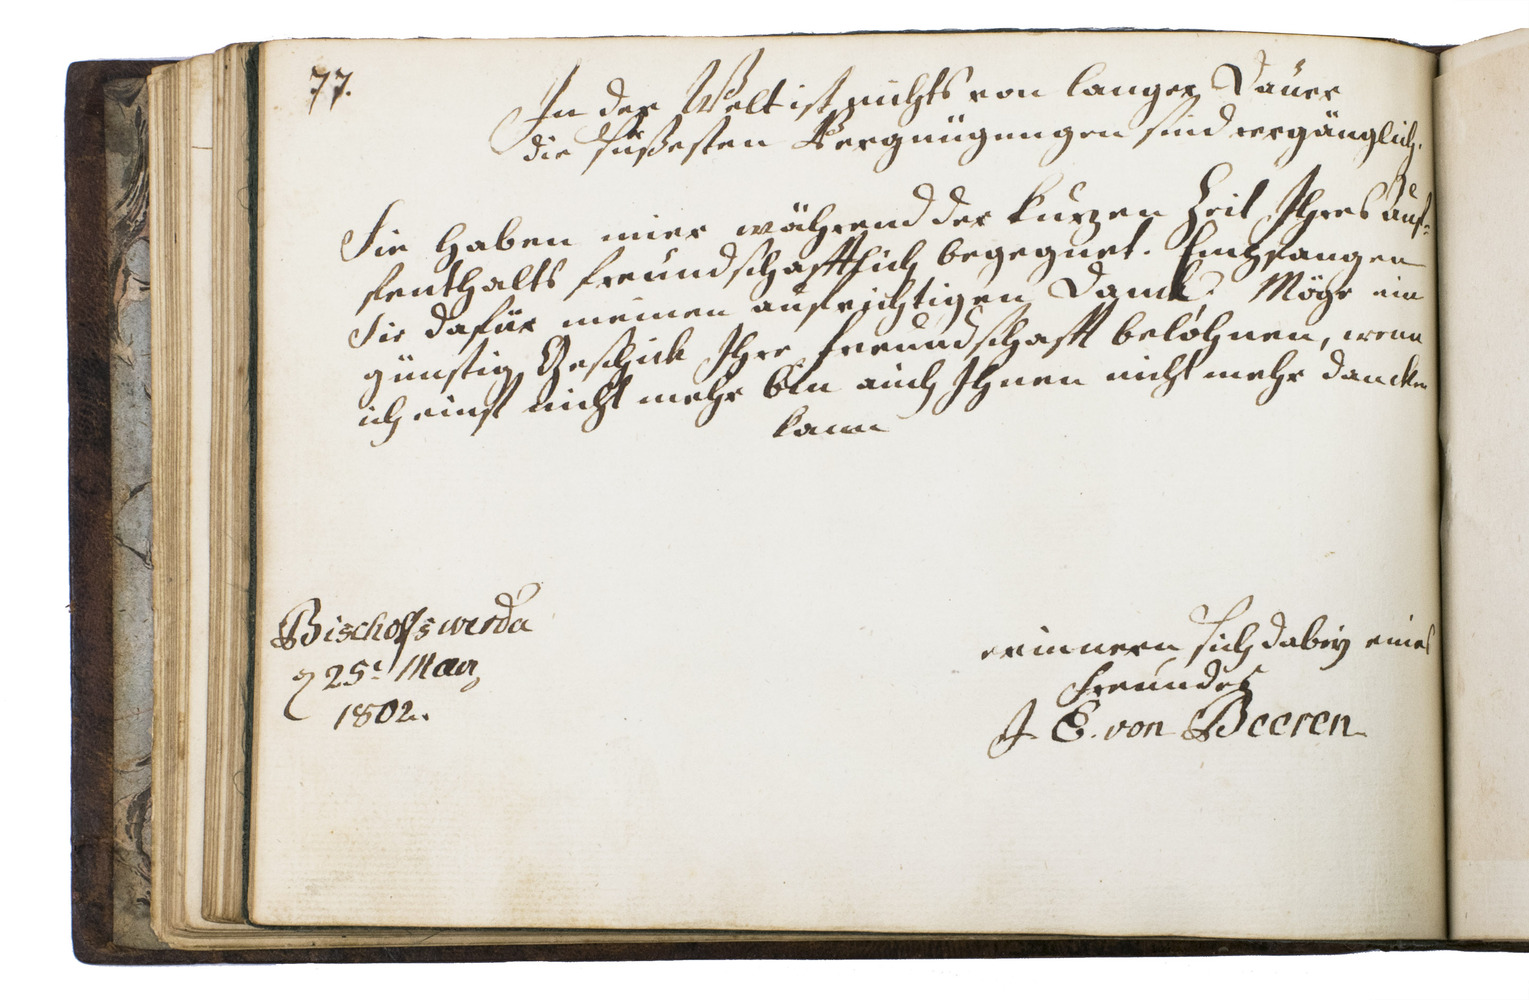 77.
In der Welt ist nichts von langer Dauer
die süßesten Vergnügungen sind vergänglich.
Sie haben mir während der kurzen Zeit Ihres Auf-
fenthalts freundschafftlich begegnet. Empfangen
Sie dafür meinen aufrichtigen Danck. Möge ein
günstig Geschick Ihre Freundschafft belohnen, wenn
ich einst nicht mehr bin auch Ihnen nicht mehr dancken
kann
Bischoffswerda
d 25t May
1802.
erinnern sich dabey eines
Freundes
J. E. von Beeren